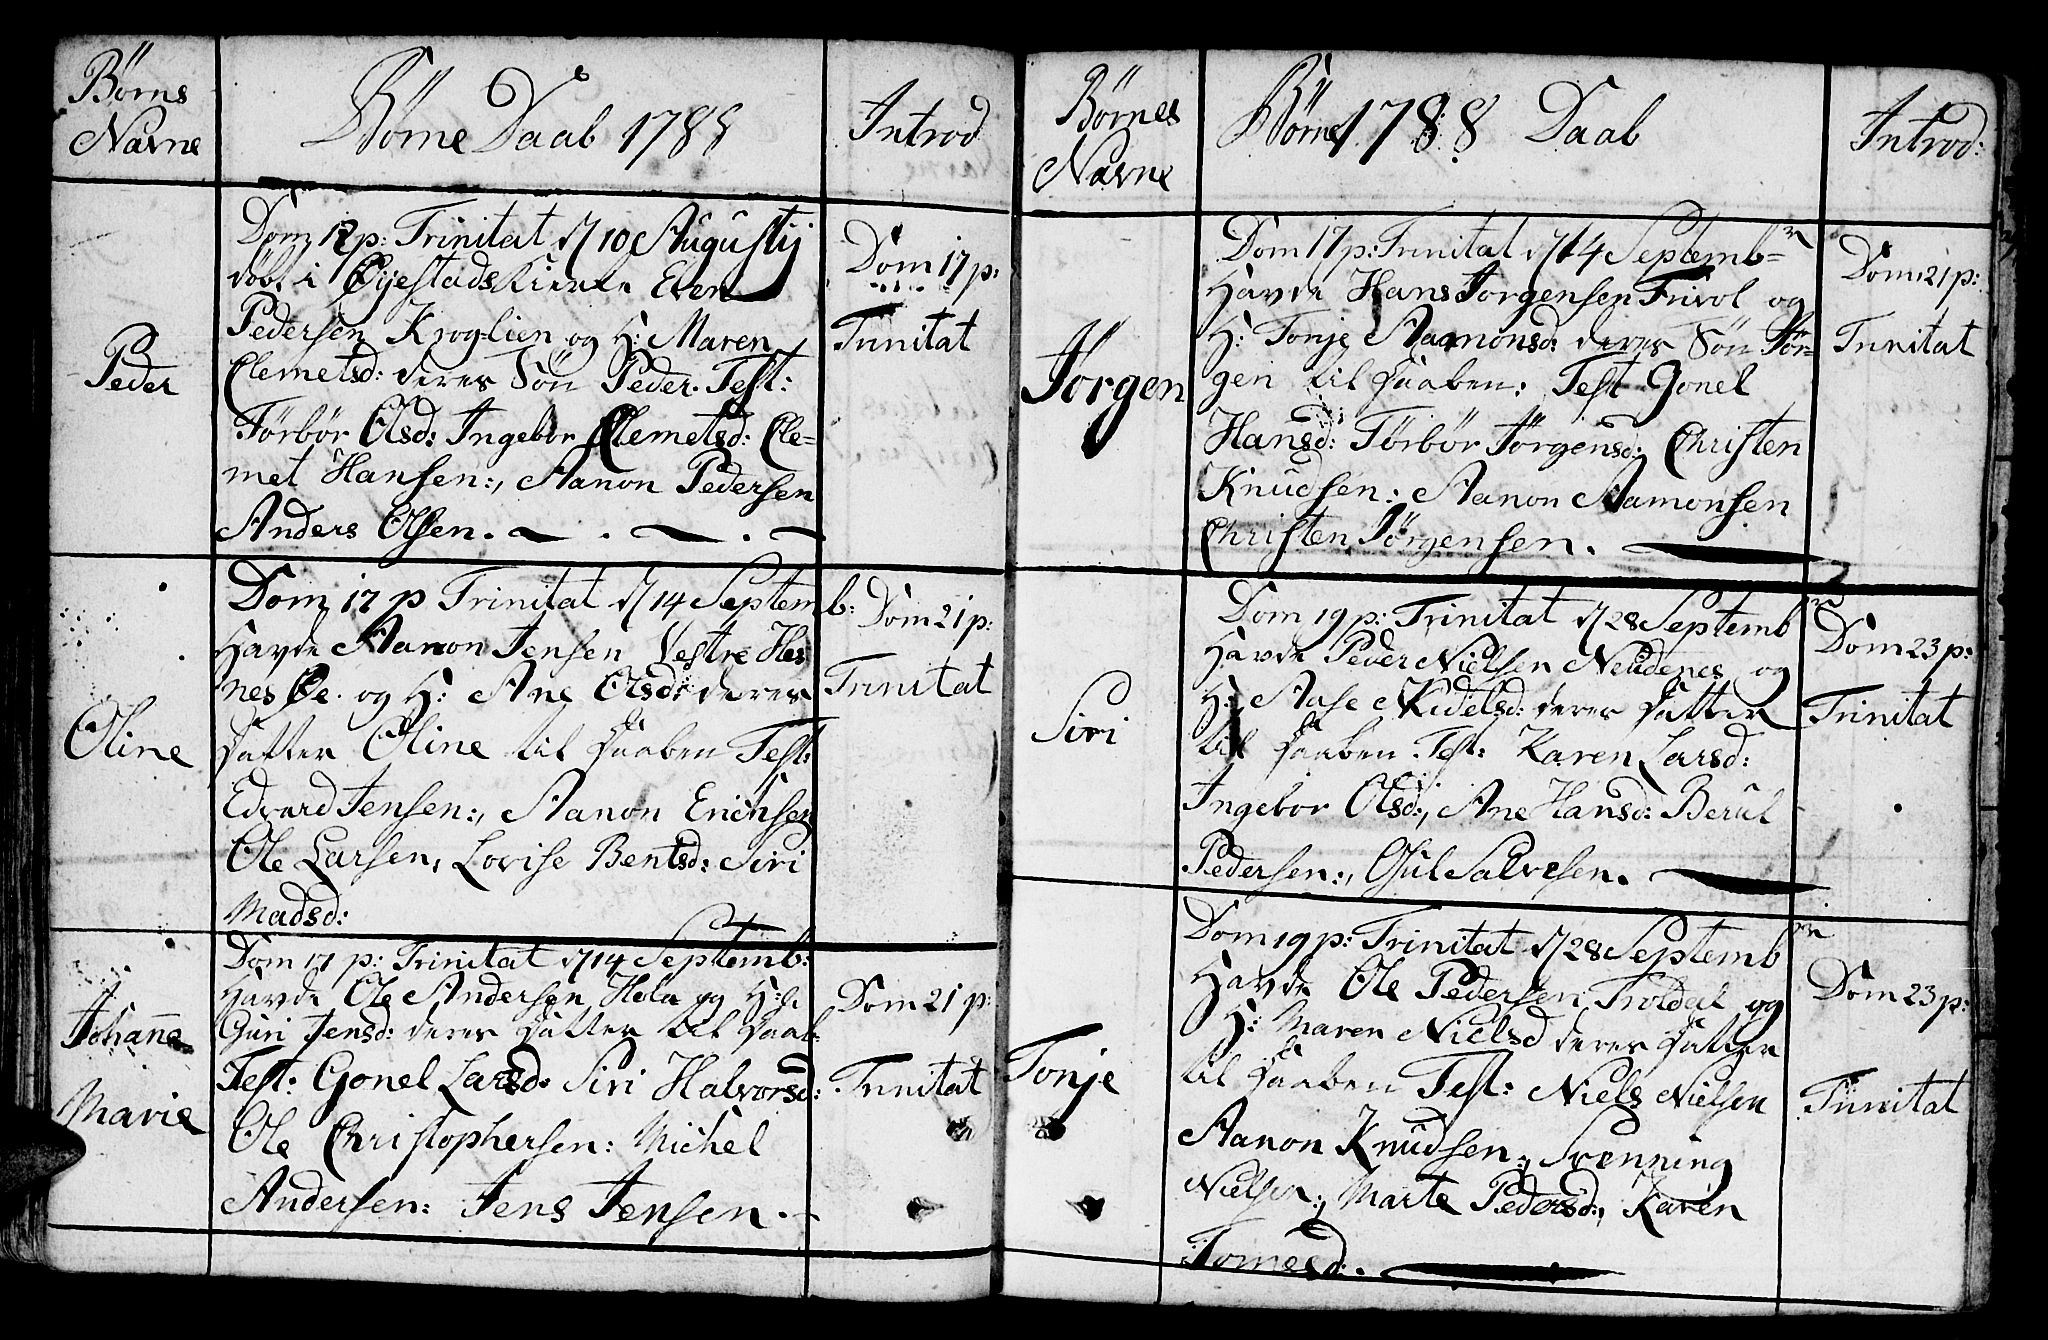 Børns
Navne
Børne Daab 1788
Introd
Peder
Dom 12 p: Trinitat d/10 Augustij
døbt i Øyestads Kirke Even
Pedersen Kroglien og H: Maren
Clemetsd: deres Søn Peder. Test:
Torbør Olsd: Ingebor Clemetsd: Cle=
met Hansen:, Aanon Pedersen
Anders Olsen.
Dom 17 p:
Trinitat
Oline
Dom 17 p Trinitat d/14 Septemb:
Havde Aanon Jensen Vestre Hes
nes Øe. og H: Ane Olsd: deres
Datter Oline til Daaben Test:
Edvard Jensen:, Aanon Erichsen
Ole Larsen, Lovise Bentsd: Siri
Madsd:
Dom 21 p:
Trinitat
Johanne
Marie
Dom 17 p: Trinitat d/14 Septemb:
Havde Ole Andersen og H:
Guri Jensd: deres Datter til Daab:
Test: Gonel Larsd: Siri Halvorsd:
Ole Christophersen: Michel
Andersen: Jens Jensen.
Dom 21 p:
Trinitat
Børnes
Navne
Børne 1788 Daab
Introd:
Jørgen
Dom 17 p: Trinitat d/14 Septembr
Havde Hans Jørgensen Frivol og
H: Tonje Aamonsd: deres Søn Jør=
gen til Daaben: Test Gonel
Hansd: Torbør Jørgensd: Christen
Knudsen: Aanon Aamonsen
Christen Jørgensen.
Dom 21 p:
Trinitat
Siri
Dom 19 p: Trinitat d/28 Septembr
Havde Peder Nielsen Nedenes og
H: Aase Kidelsd: deres Datter
til Daaben Test: Karen Larsd:
Ingebor Olsd:, Ane Hansd: Berul
Pedersen:, Gjul Salvesen.
Dom 23 p:
Trinitat
Tonje
Dom 19 p: Trinitat d/28 Septembr
Havde Ole Pedersen Troldal og
H: Maren Nielsd deres Datter
til Daaben Test: Niels Nielsen
Aanon Knudsen:, Svenning
Nielsen:, Marte Pedersd:, Karen
Tomesd:.
Dom 23 p:
Trinitat